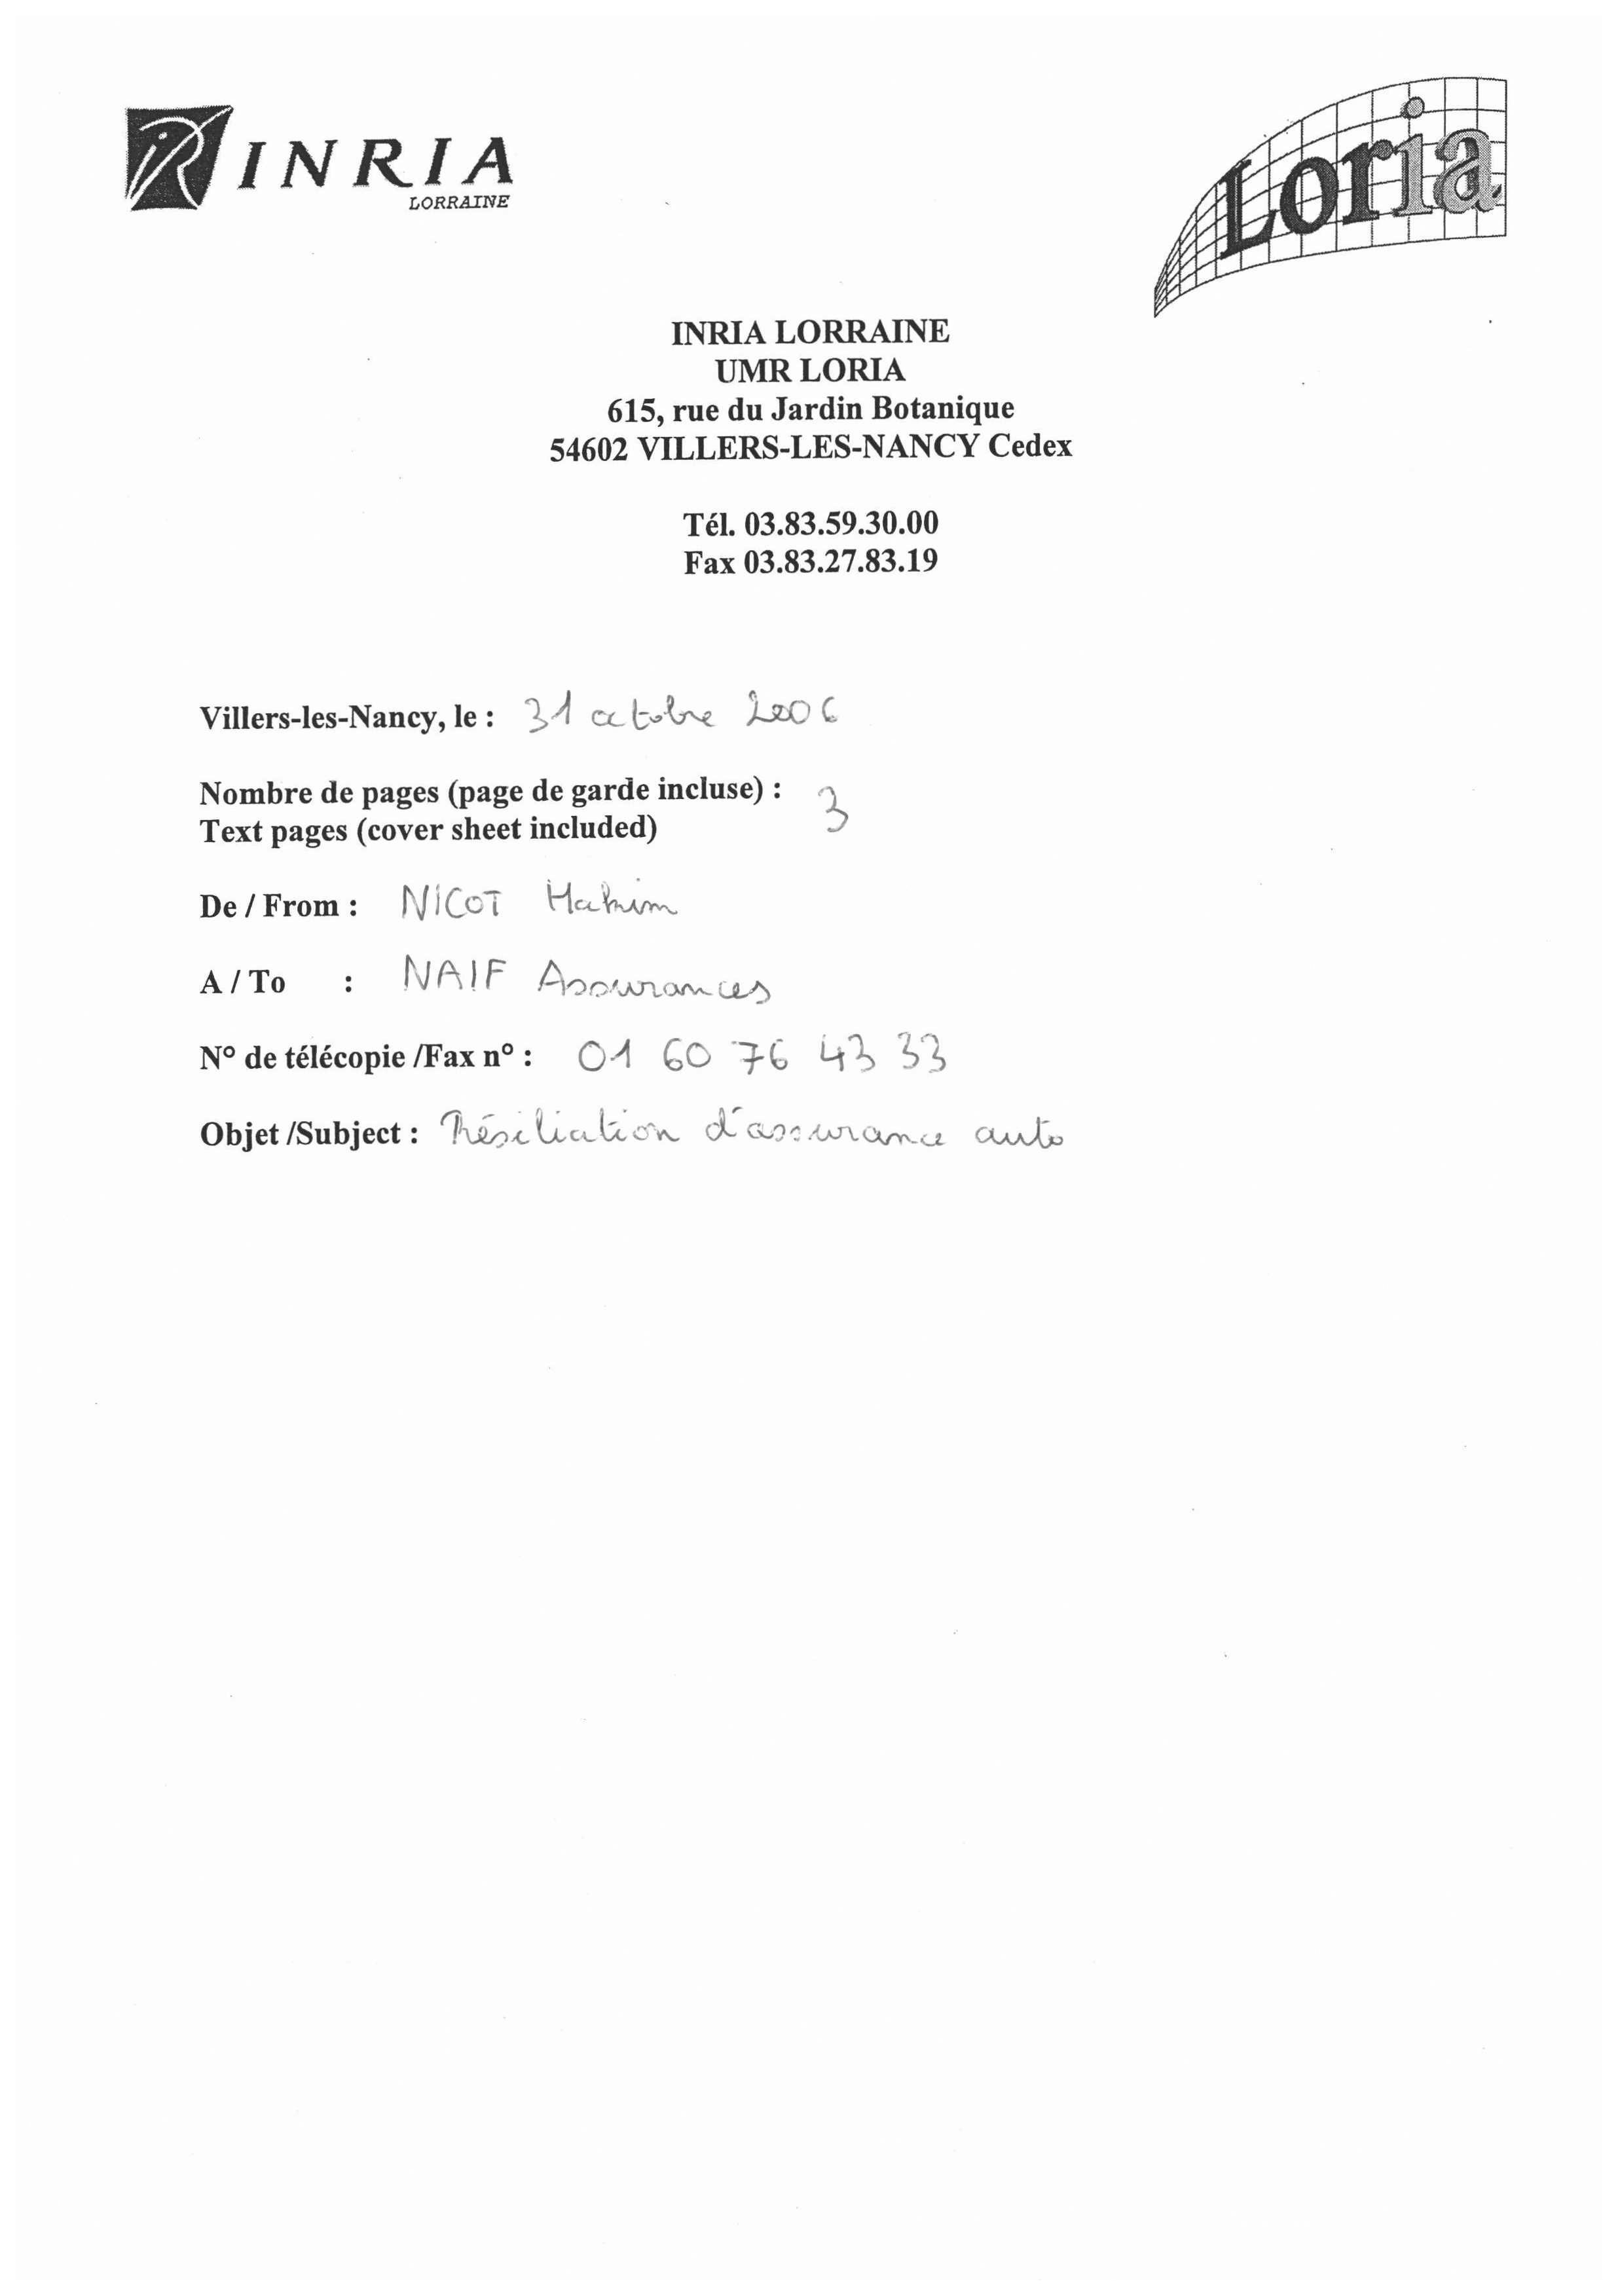 INRIA
LORRAINE
Loria
INRIA LORRAINE
UMR LORIA
615, rue du Jardin Botanique
54602 VILLERS-LES-NANCY Cedex
Tél. 03.83.59.30.00
Fax 03.83.27.83.19
Villers-les-Nancy, le : 31 octobre 2006
Nombre de pages (page de garde incluse) : 3
Text pages (cover sheet included)
De / From : NICOT Hakim
A / To : NAIF Assurances
N° de télécopie /Fax n° : 01 60 76 43 33
Objet /Subject : Résiliation d'assurance auto